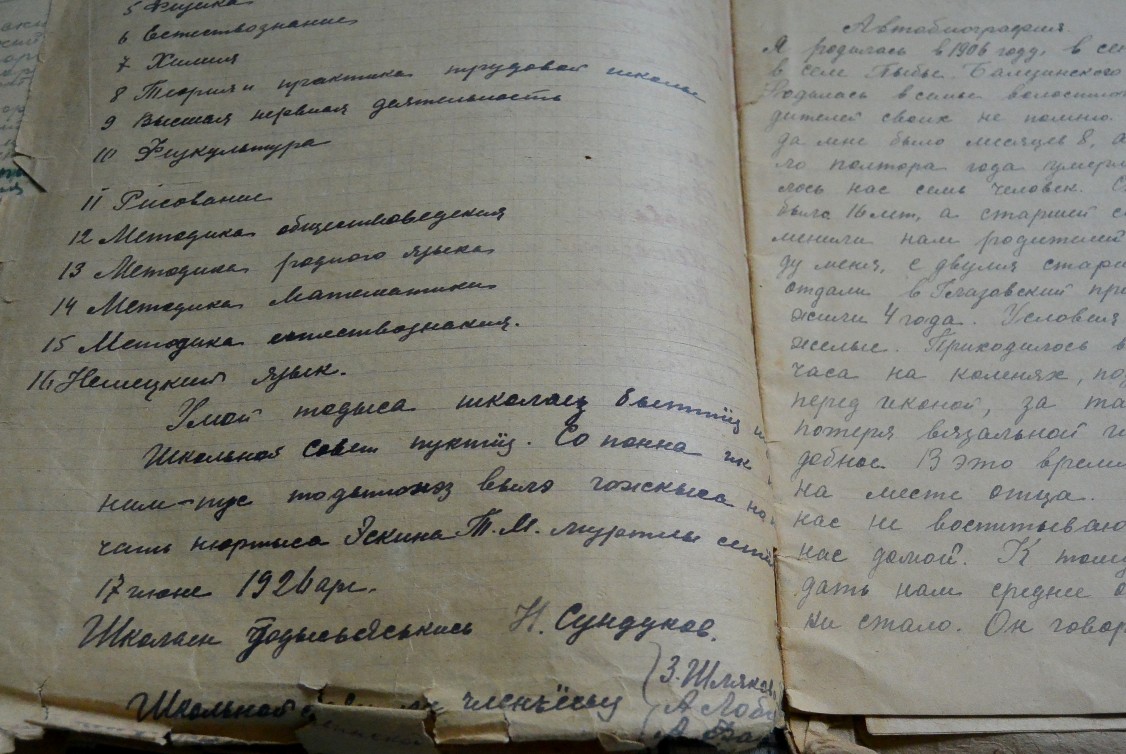 5 Физика
6 Естествознание
7 Химия
8 Теория и практика трудовой школы
9 Высшая нервная деятельность
10 Физкультура
11 Рисование
12 Методика обществоведения
13 Методика родного языка
14 Методика математики
15 Методика естествознания.
16 Немецкий язык.
Умой тодыса школаез быттӥз
Школьной совет пуктӥз. Со понна ик
ним-тус тодытонэз вылэ гожкыса
чать нюртыса Эскина Т. М. муртлы
17 июне 1926 ар.
Школаен Тодысьяськись Н. Сундуков.
З. Шляк
Школьной членъёсыз
А Лоб
А.
Автобиография.
Я родилась в 1906 году, в
в селе Пыбье Балезинского
Родилась в семье волостно
дителей своих не помню.
да мне было месяцев 8, а
го полтора года умерл
лось нас семь человек.
было 16 лет, а старшей
менили нам родителей
ду меня, с двумя стар
отдали в Глазовский при
жили 4 года. Условия
желые. Приходилось
часа на коленях, под
перед иконой, за
потеря вязальной
добное В это время
на месте отца.
нас не воспитываю
нас домой. К тому
дать нам среднее о
ки стало. Он говор